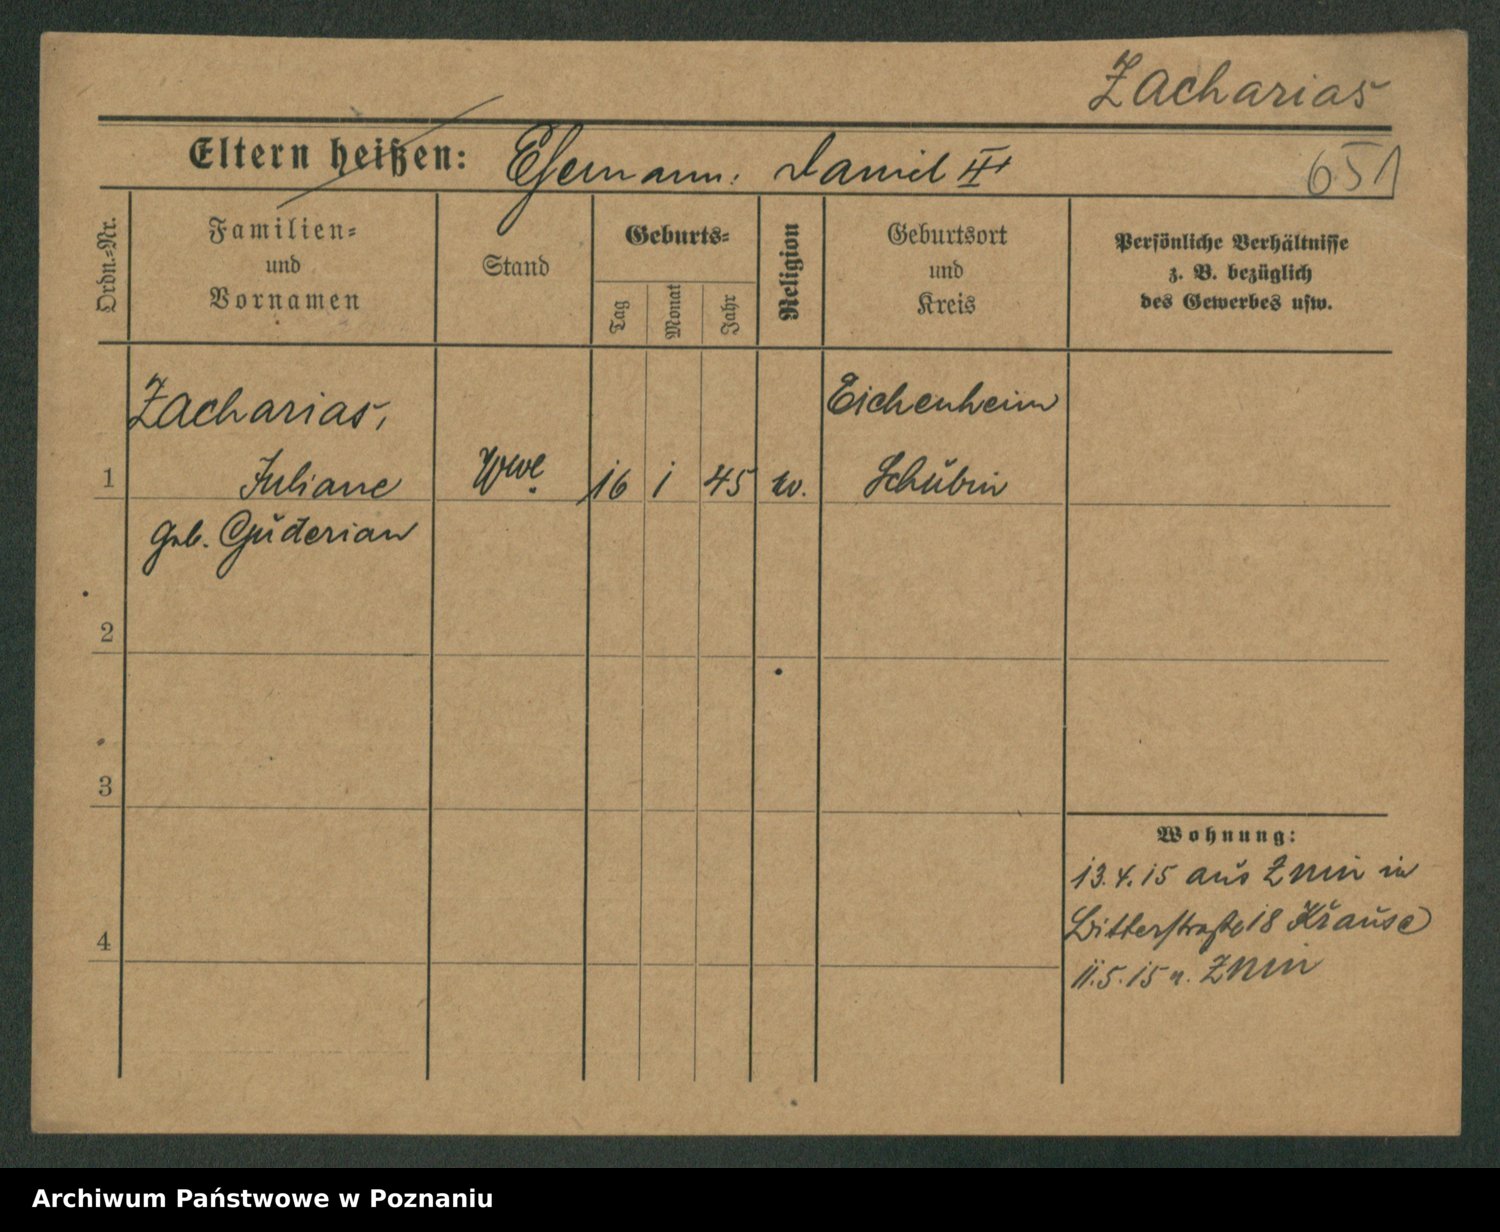 Zacharias
Eltern heißen: Ehemann: Daniel III
651
Ordn.-Nr.
Familien-
und
Vornamen
Stand
Geburts-
Tag
Monat
Jahr
Religion
Geburtsort
und
Kreis
Persönliche Verhältnisse
z. B. bezüglich
des Gewerbes usw.
Zacharias,
Eichenheim
1 Juliane Wwe. 16 1 45 Schubin
geb. Guderian
2
3
4
Wohnung:
13.4.15 aus Znin in
18 Krause
11.5.15 n. Znin
Archiwum Państwowe w Poznaniu